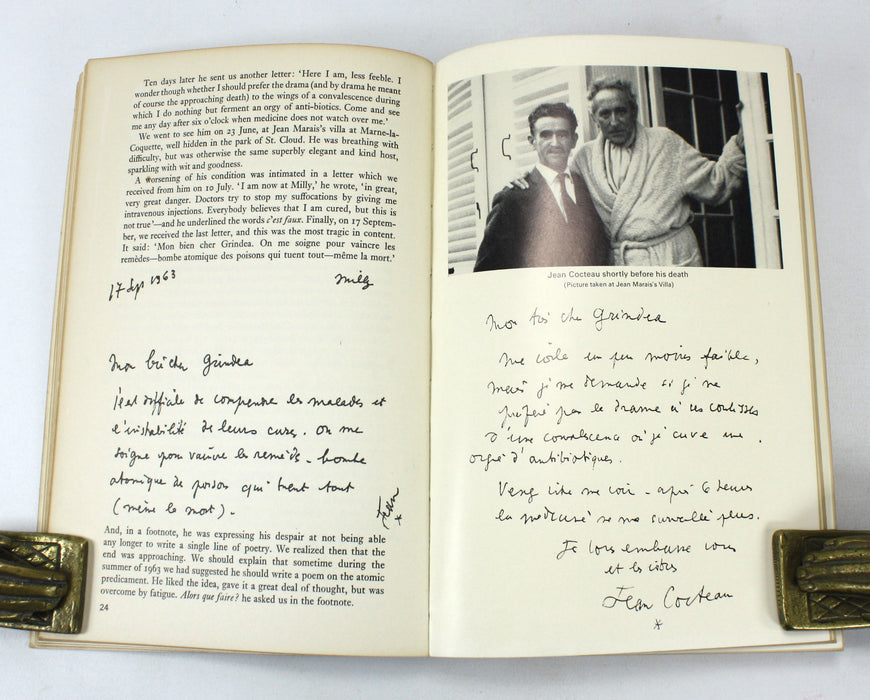 Ten days later he sent us another letter: 'Here I am, less feeble. I
wonder though whether I should prefer the drama (and by drama he meant
of course the approaching death) to the wings of a convalescence during
which I do nothing but ferment an orgy of anti-biotics. Come and see
me any day after six o'clock when medicine does not watch over me.'
We went to see him on 23 June, at Jean Marais's villa at Marne-la-
Coquette, well hidden in the park of St. Cloud. He was breathing with
difficulty, but was otherwise the same superbly elegant and kind host,
sparkling with wit and goodness.
A worsening of his condition was intimated in a letter which we
received from him on 10 July. 'I am now at Milly,' he wrote, 'in great,
very great danger. Doctors try to stop my suffocations by giving me
intravenous injections. Everybody believes that I am cured, but this is
not true'—and he underlined the words c'est faux. Finally, on 17 Septem-
ber, we received the last letter, and this was the most tragic in content.
It said: 'Mon bien cher Grindea. On me soigne pour vaincre les
remèdes—bombe atomique des poisons qui tuent tout—même la mort.'
17 Sep 1963 Milly
Mon bien cher Grindea
il est difficile de comprendre les malades et
l'instabilité de leurs cures. On me
soigne pour vaincre les remèdes - bombe
atomique de poisons qui tuent tout
(même la mort).
Jean
*
And, in a footnote, he was expressing his despair at not being able
any longer to write a single line of poetry. We realized then that the
end was approaching. We should explain that sometime during the
summer of 1963 we had suggested he should write a poem on the atomic
predicament. He liked the idea, gave it a great deal of thought, but was
overcome by fatigue. Alors que faire? he asked us in the footnote.
24
Jean Cocteau shortly before his death
(Picture taken at Jean Marais's Villa)
Mon cher Grindea
me voilà un peu moins faible,
mais je me demande si je ne
préfère pas le drame à ces coulisses
d'une convalescence où je cuve une
orgie d'antibiotiques.
Venez vite me voir - après 6 heures
la médecine ne me surveille plus.
Je vous embrasse vous
et les vôtres
Jean Cocteau
*